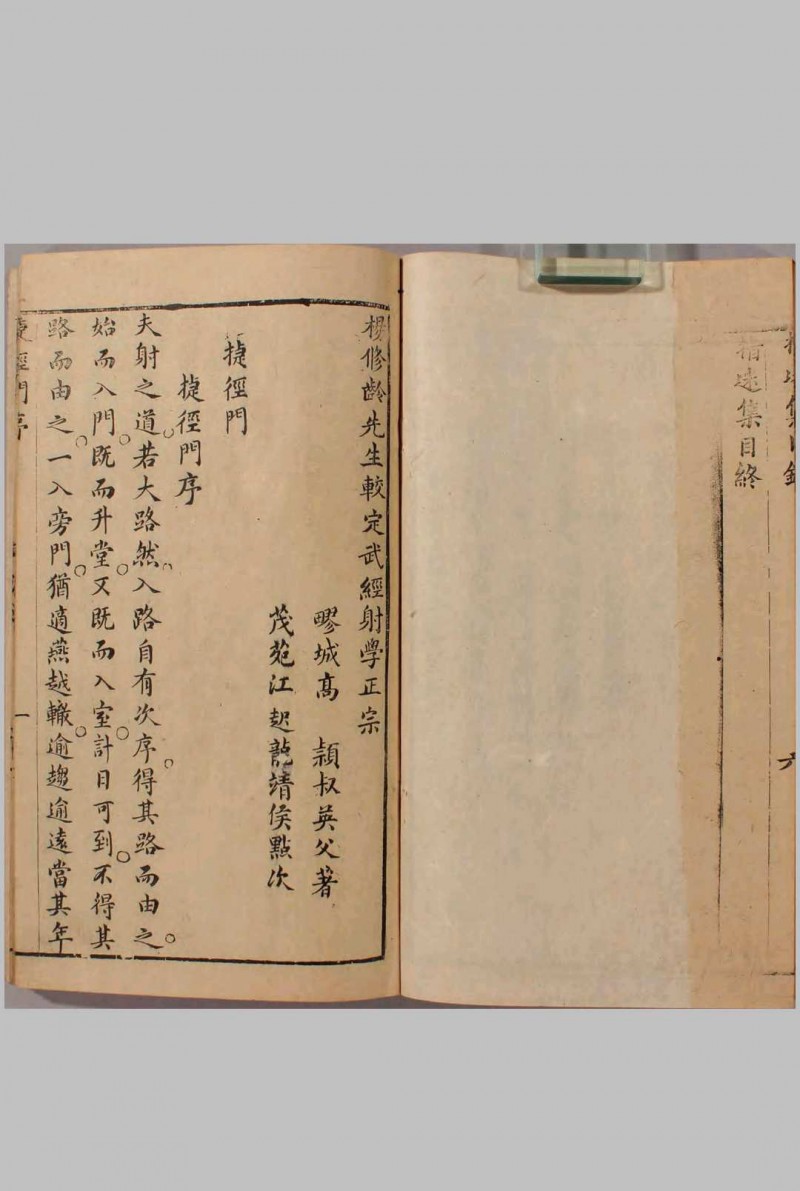 指迷集目終
楊修齡先生較定武經射學正宗
疁城高　頴叔英父著
茂苑江起龍靖侯點次
捷徑門
捷徑門序
夫射之道若大路然入路自有次序得其路而由之
始而入門既而升堂又既而入室計日可到不得其
路而由之一入旁門猶適燕越轍逾趨逾遠當其年
捷徑門序
一